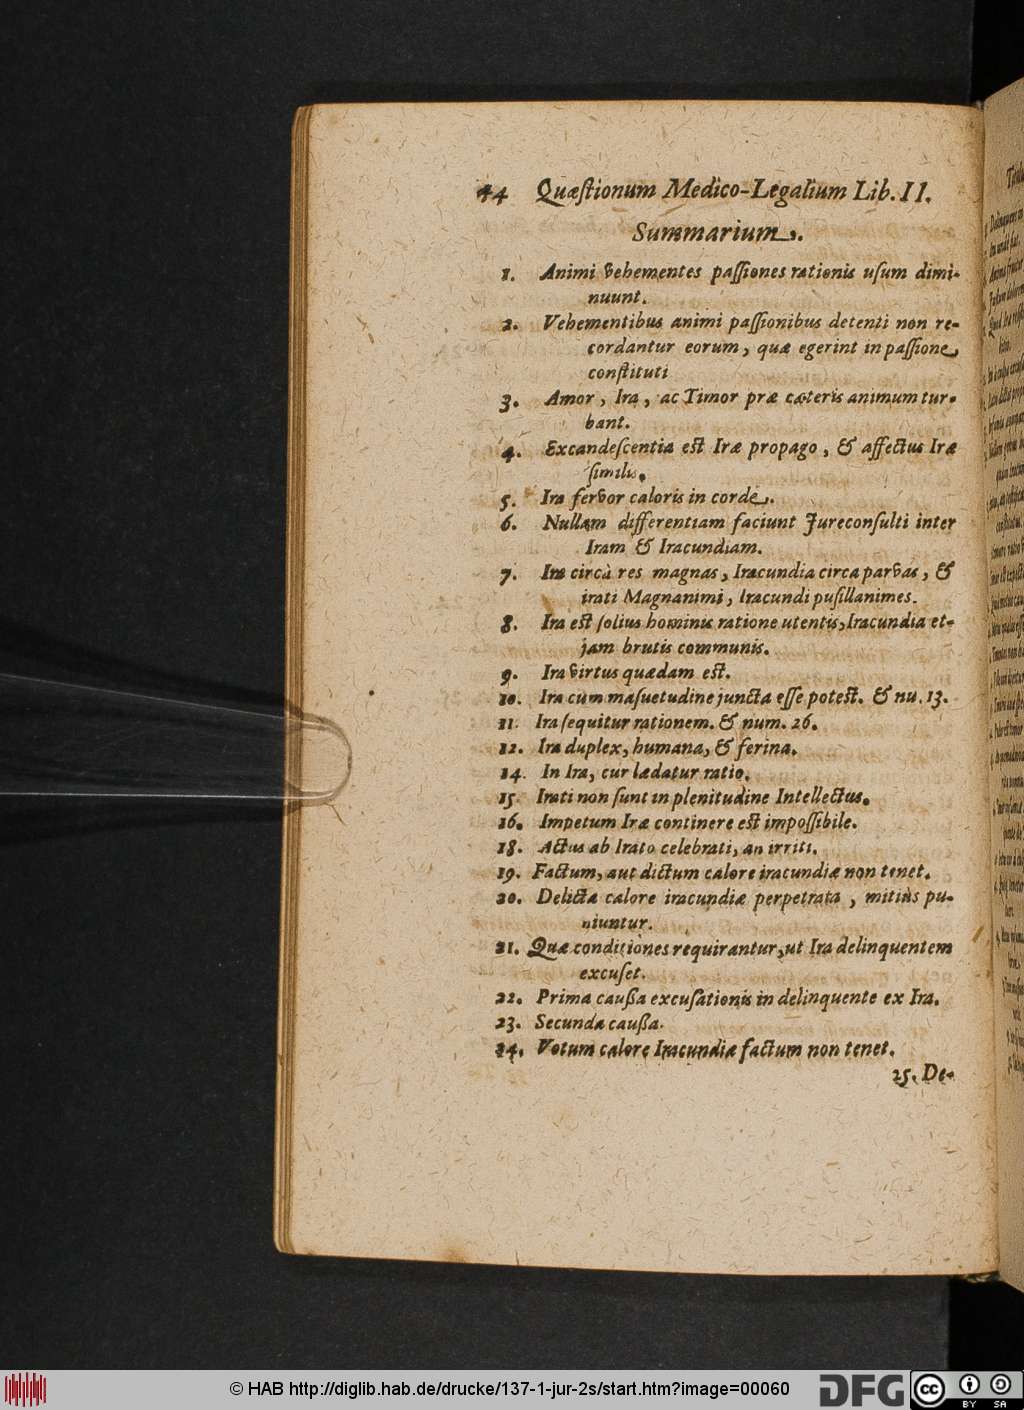 44 Quæſtionum Medico-Legalium Lib. II.
Summarium.
1. Animi vehementes paſſiones rationis uſum dimi-
nuunt.
2. Vehementibus animi paſſionibus detenti non re-
cordantur eorum, quæ egerint in paſſione,
conſtituti
3. Amor, Ira, ac Timor præ cæteris animum tur-
bant.
4. Excandeſcentia eſt Iræ propago, & affectus Iræ
ſimilis.
5. Ira fervor caloris in corde.
6. Nullam differentiam faciunt Jureconſulti inter
Iram & Iracundiam.
7. Ira circà res magnas, Iracundia circa parvas, &
irati Magnanimi, Iracundi puſillanimes.
8. Ira eſt ſolius hominis ratione utentis, Iracundia et-
jam brutis communis.
9. Ira virtus quædam eſt.
10. Ira cum maſuetudine juncta eſſe poteſt. & nu. 13.
11. Ira ſequitur rationem. & num. 26.
12. Ira duplex, humana, & ferina.
14. In Ira, cur lædatur ratio.
15 Irati non ſunt in plenitudine Intellectus.
16. Impetum Iræ continere eſt impoſſibile.
18. Actus ab Irato celebrati, an irriti.
19. Factum, aut dictum calore iracundiæ non tenet.
20. Delicta calore iracundiæ perpetrata, mitiùs pu-
niuntur.
21. Quæ conditiones requirantur, ut Ira delinquentem
excuſet.
22. Prima cauſſa excuſationis in delinquente ex Ira.
23. Secunda cauſſa.
24. Votum calore Iracundiæ factum non tenet.
25. De-
© HAB http://diglib.hab.de/drucke/137-1-jur-2s/start.htm?image=00060
DFG
cc
BY SA